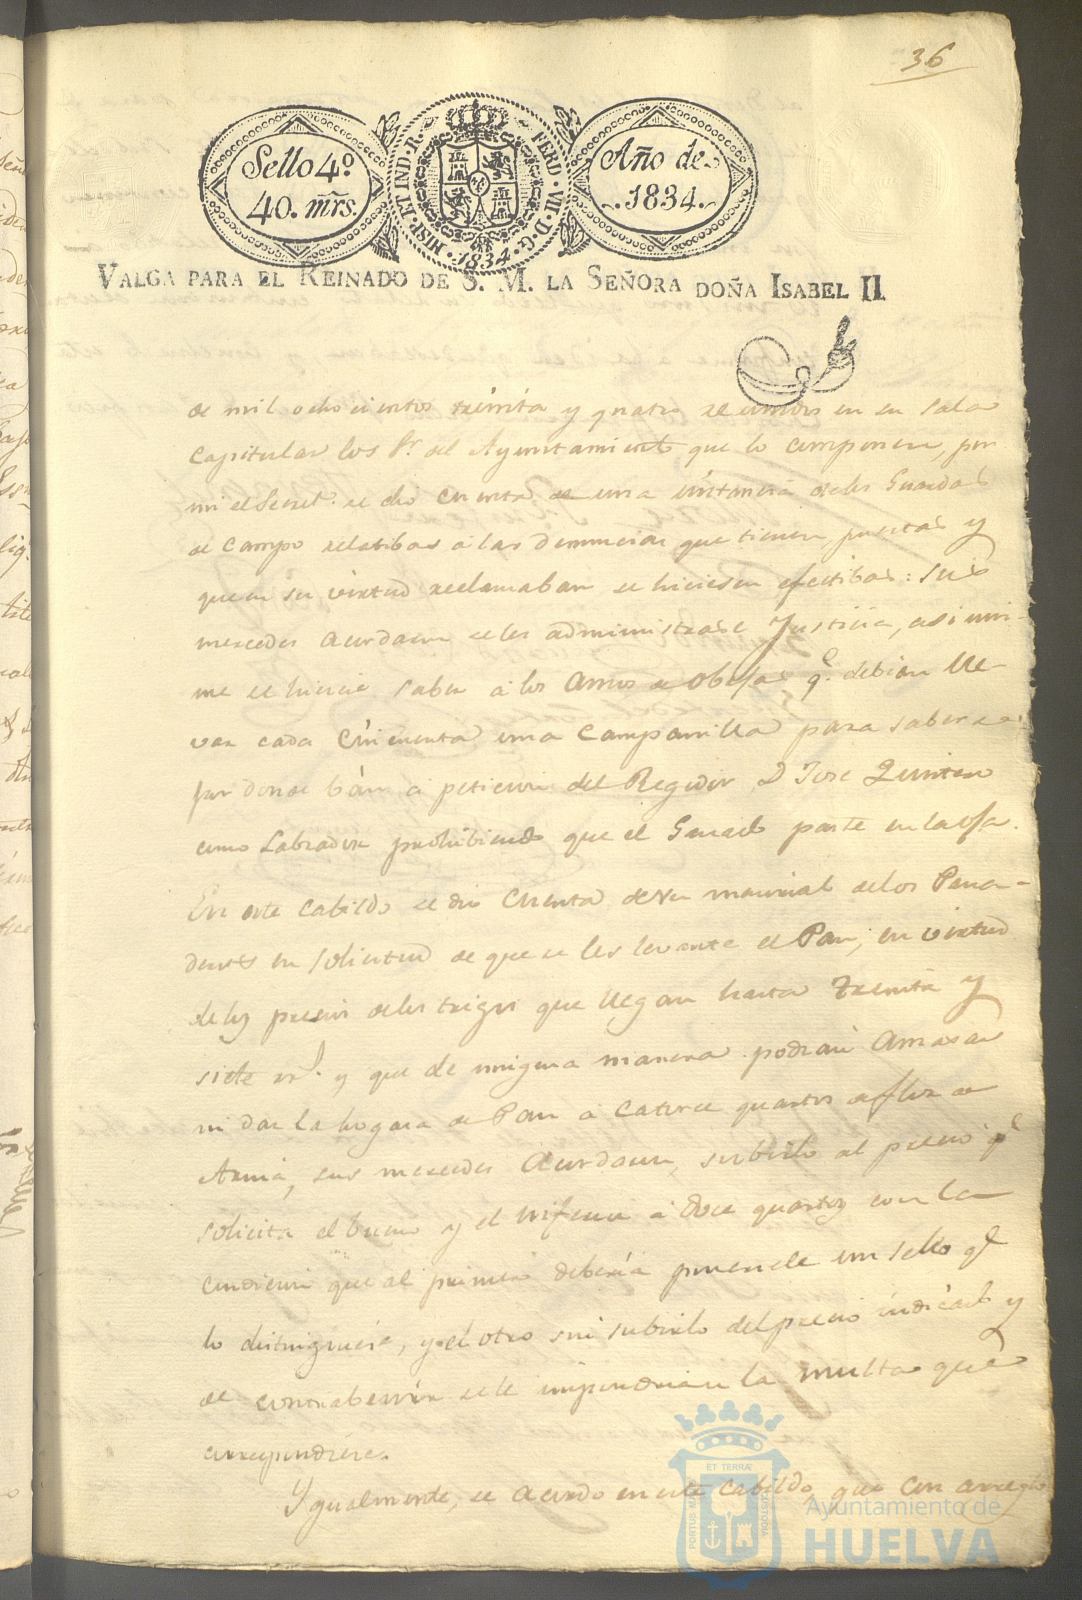 36
Sello 4º.
40. mrs.
HISP. ET IND. R. FERD. VII. D. G. 1834
Año de
1834.
VALGA PARA EL REINADO DE S. M. LA SEÑORA DOÑA ISABEL II
de mil ochocientos treinta y quatro reunidos en su sala
capitular los Sr. del Ayuntamiento que lo componen, por
mi el Secret. se dio cuenta de una instancia de los Guardas
de campo relatibas a las denuncias que tienen puestas y
que en su virtud reclamaban se hiciesen efectibas: sus
mercedes acordaron se les administrase Justicia, asi mis-
me se hiciese saber a los amos de obejas q. debian lle-
var cada cincuenta una campanilla para saberse
por donde bán a peticion del Regidor D Jose Quintero
como Labrador prohibiendo que el Ganado paste en la
En este cabildo se dio cuenta de un memorial de los Pana-
deros en solicitud de que se les levante el Pan, en virtud
de los precios de los trigos que llegan hasta treinta y
siete rs. y que de ninguna manera podian amasar
ni dar la hogasa de Pan a catorce quartos de flor de
Arina, sus mercedes acordaron, subirlo al precio q.e
solicita el bueno y el inferior a doce quartos con la
condicion que al primero deberia ponersele un sello q.e
lo distinguiese, y el otro sin subirlo del precio indicado y
de contrabenir se le impondrian la multa que
correspondiere.
Ygualmente, se acordo en este cabildo, que con arreglo
ET TERRÆ
PORTUS MARIS
CUSTODIA
Ayuntamiento de
HUELVA